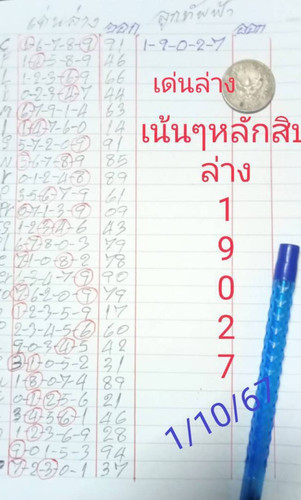 เด่นล่าง ออก ลูกทัพฟ้า ออก
1-6-7-8-9 91 1-9-0-2-7
1-2-5-8-9 46
1-2-3-6-9 66
0-2-3-4-7 44
6-7-9-1-4 63
1-4-7-6-0 14
5-7-2-0-9 91
6-7-8-9 85
0-1-2-4-8 89
3-5-6-7-9 61
0-7-1-2-9 09
1-2-3-4-6 43
6-7-8-0-3 79
7-1-0-8-2 78
2-4-7-9 90
7-6-2-0-9 79
1-2-3-5-9 17
2-3-4-5-6 60
9-0-3-4-5 42
3-1-0-5-2 31
1-8-0-7-4 89
0-1-2-5-6 21
3-4-5-6-1 46
1-2-3-6-9 28
9-0-1-5-3 94
7-2-3-0-1 37
เด่นล่าง
เน้นๆหลักสิบ
ล่าง
1
9
0
2
7
1/10/67